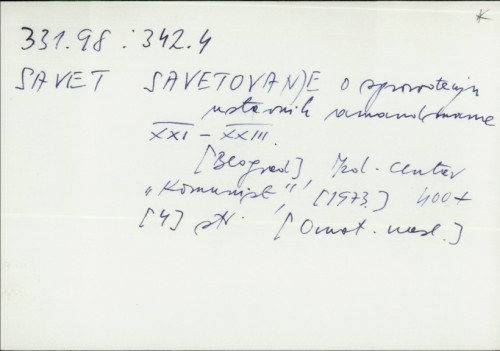 *
331.98 : 342.4
SAVET SAVETOVANJE o sprovođenju
ustavnih amandmana
XXI – XXIII.
[Beograd], Izd. centar
„Komunist", [1973.] 400 +
[4] str. [Omot. nasl.]